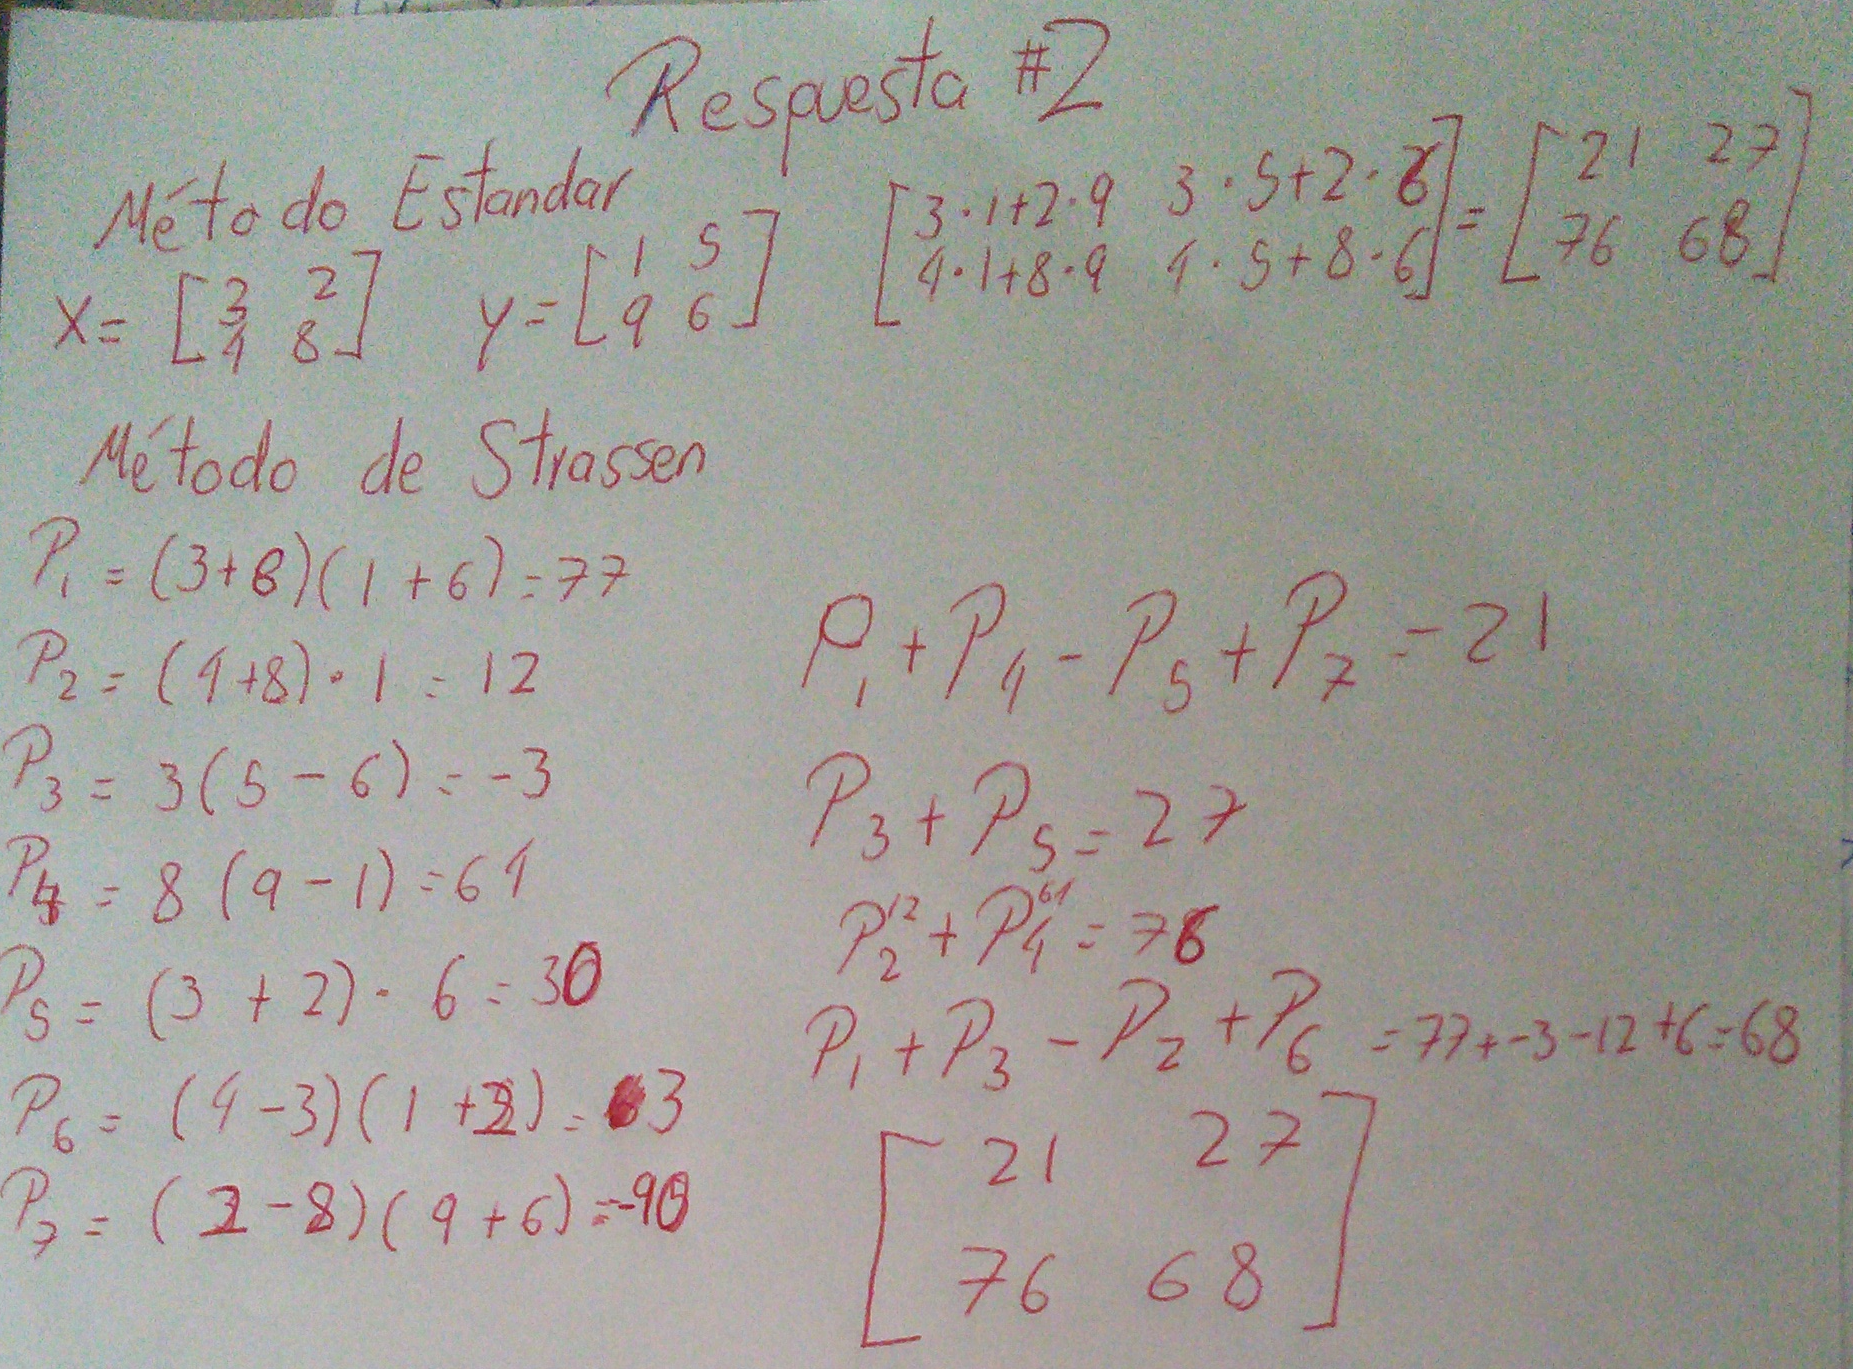 Respuesta #2
Método Estandar
X= [3 2
4 8] y= [1 5
9 6] [3·1+2·9 3·5+2·6
4·1+8·9 4·5+8·6] = [21 27
76 68]
Método de Strassen
P1 = (3+8)(1+6)=77
P2 = (4+8)·1 = 12
P3 = 3(5-6) = -3
P4 = 8(9-1) = 64
P5 = (3+2)·6 = 30
P6 = (4-3)(1+2) = 3
P7 = (2-8)(9+6) = -90
P1+P4-P5+P7 = 21
P3+P5 = 27
P2 12 + P4 64 = 76
P1+P3-P2+P6 = 77+-3-12+6=68
[21 27
76 68]